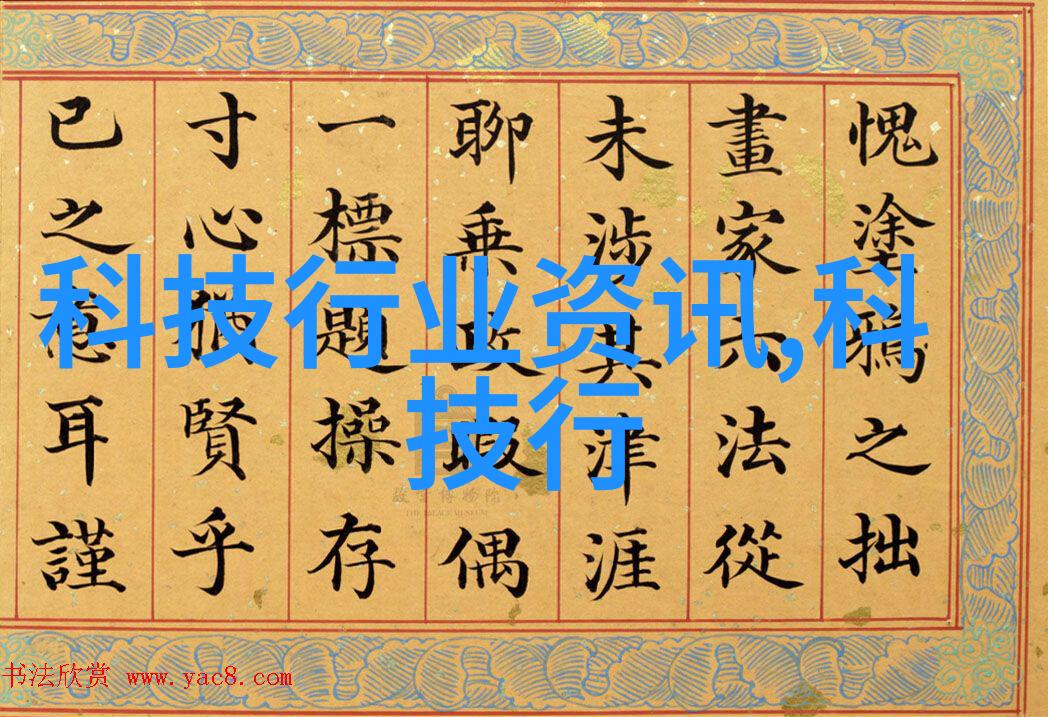 愧塗鴉之拙
畫家六法從
未涉其津涯
聊乗政暇偶
一標題操存
寸心猶賢乎
已之意耳謹
科技行业资讯,科
技行
故宫博物院
THE PALACE MUSEUM
书法欣赏 www.yac8.com